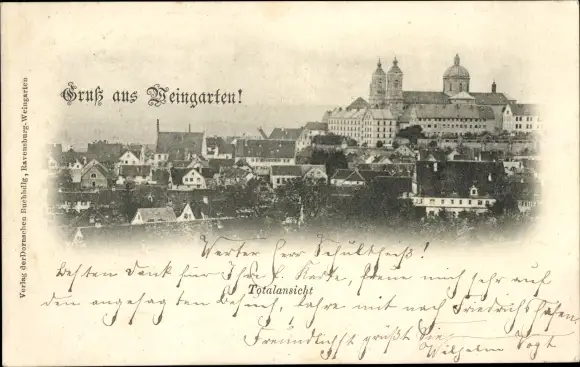 Gruß aus Weingarten!
Verlag der Dornschen Buchhdlg., Ravensburg-Weingarten
Werter Herr Schultheiß!
Besten Dank für Ihre l. Karte, freue mich sehr auf
Totalansicht
den angesagten Besuch, fahre mit nach Friedrichshafen.
Freundlichst grüßt Sie
Wilhelm Vogt